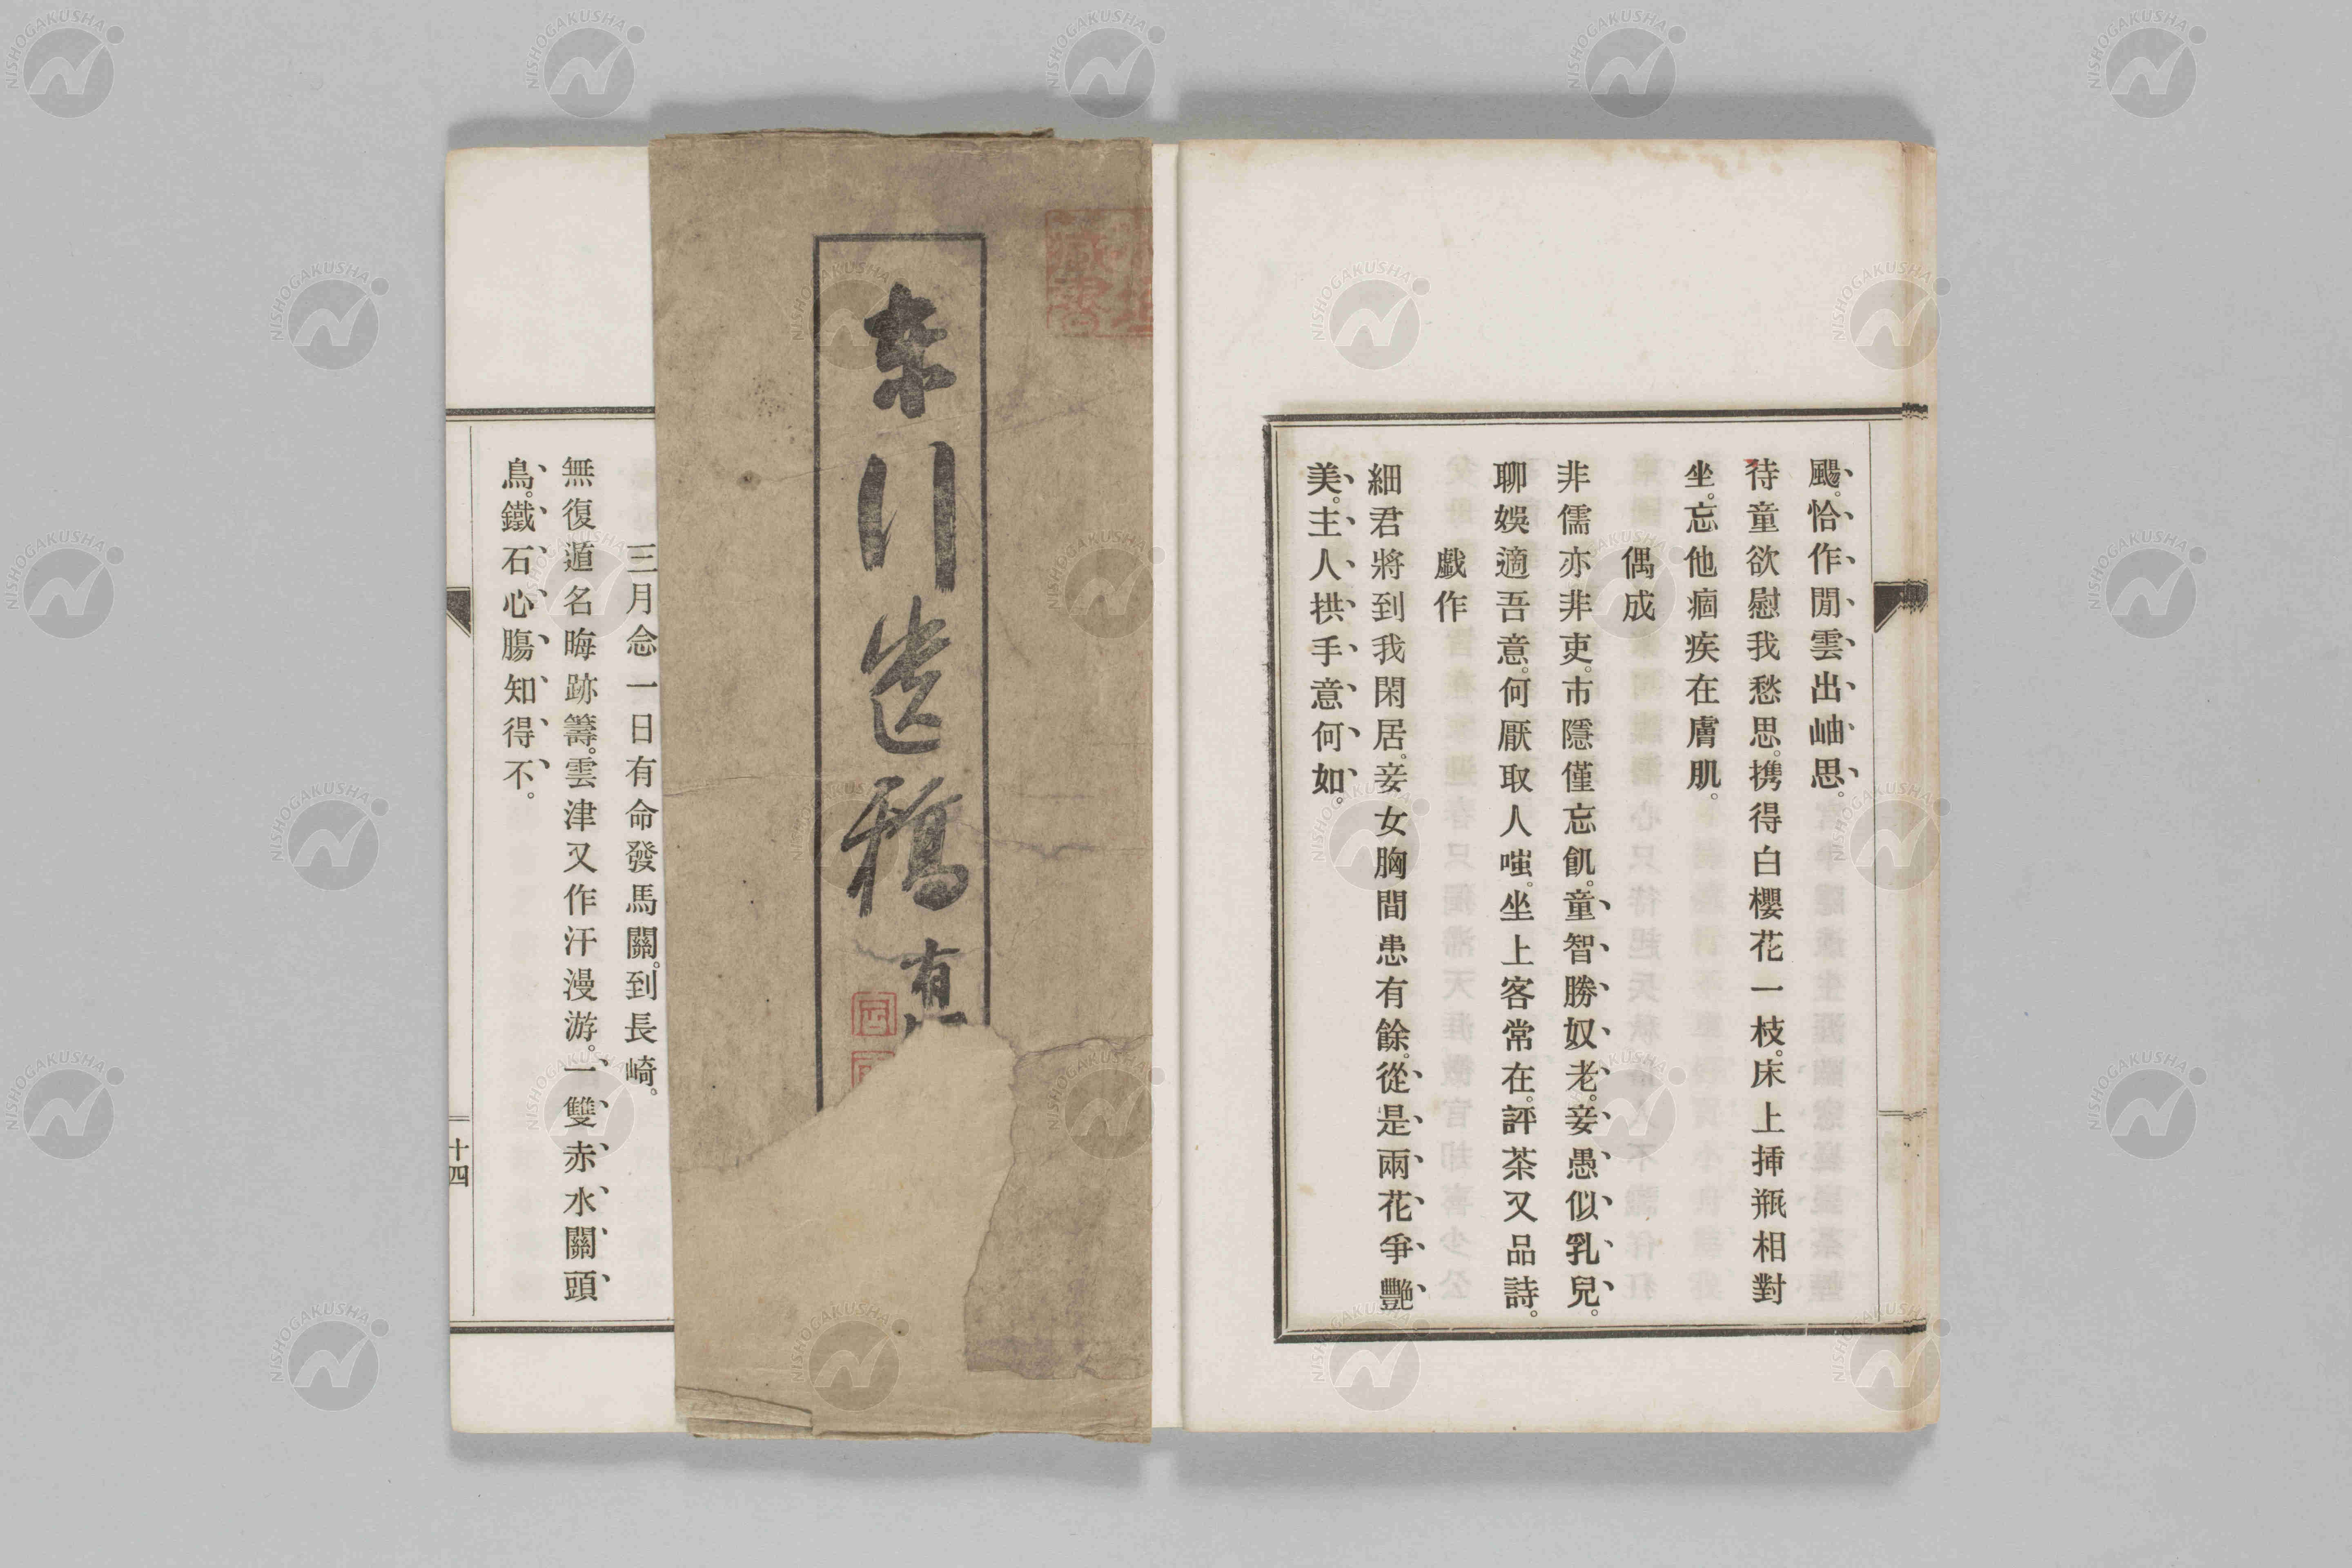 颺。恰作閒雲出岫思。
待童欲慰我愁思。携得白櫻花一枝。床上挿瓶相對
坐。忘他痼疾在膚肌。
偶成
非儒亦非吏。市隱僅忘飢。童智勝奴老。妾愚似乳兒。
聊娛適吾意。何厭取人嗤。坐上客常在。評茶又品詩。
戯作
細君將到我閑居。妾女胸間患有餘。從是兩花爭艷
美。主人拱手意何如。
川遺稿
三月念一日有命發馬關。到長崎。
無復遁名晦跡籌。雲津又作汗漫游。一雙赤水關頭
鳥。鐵石心膓知得不。
十四
NISHOGAKUSHA